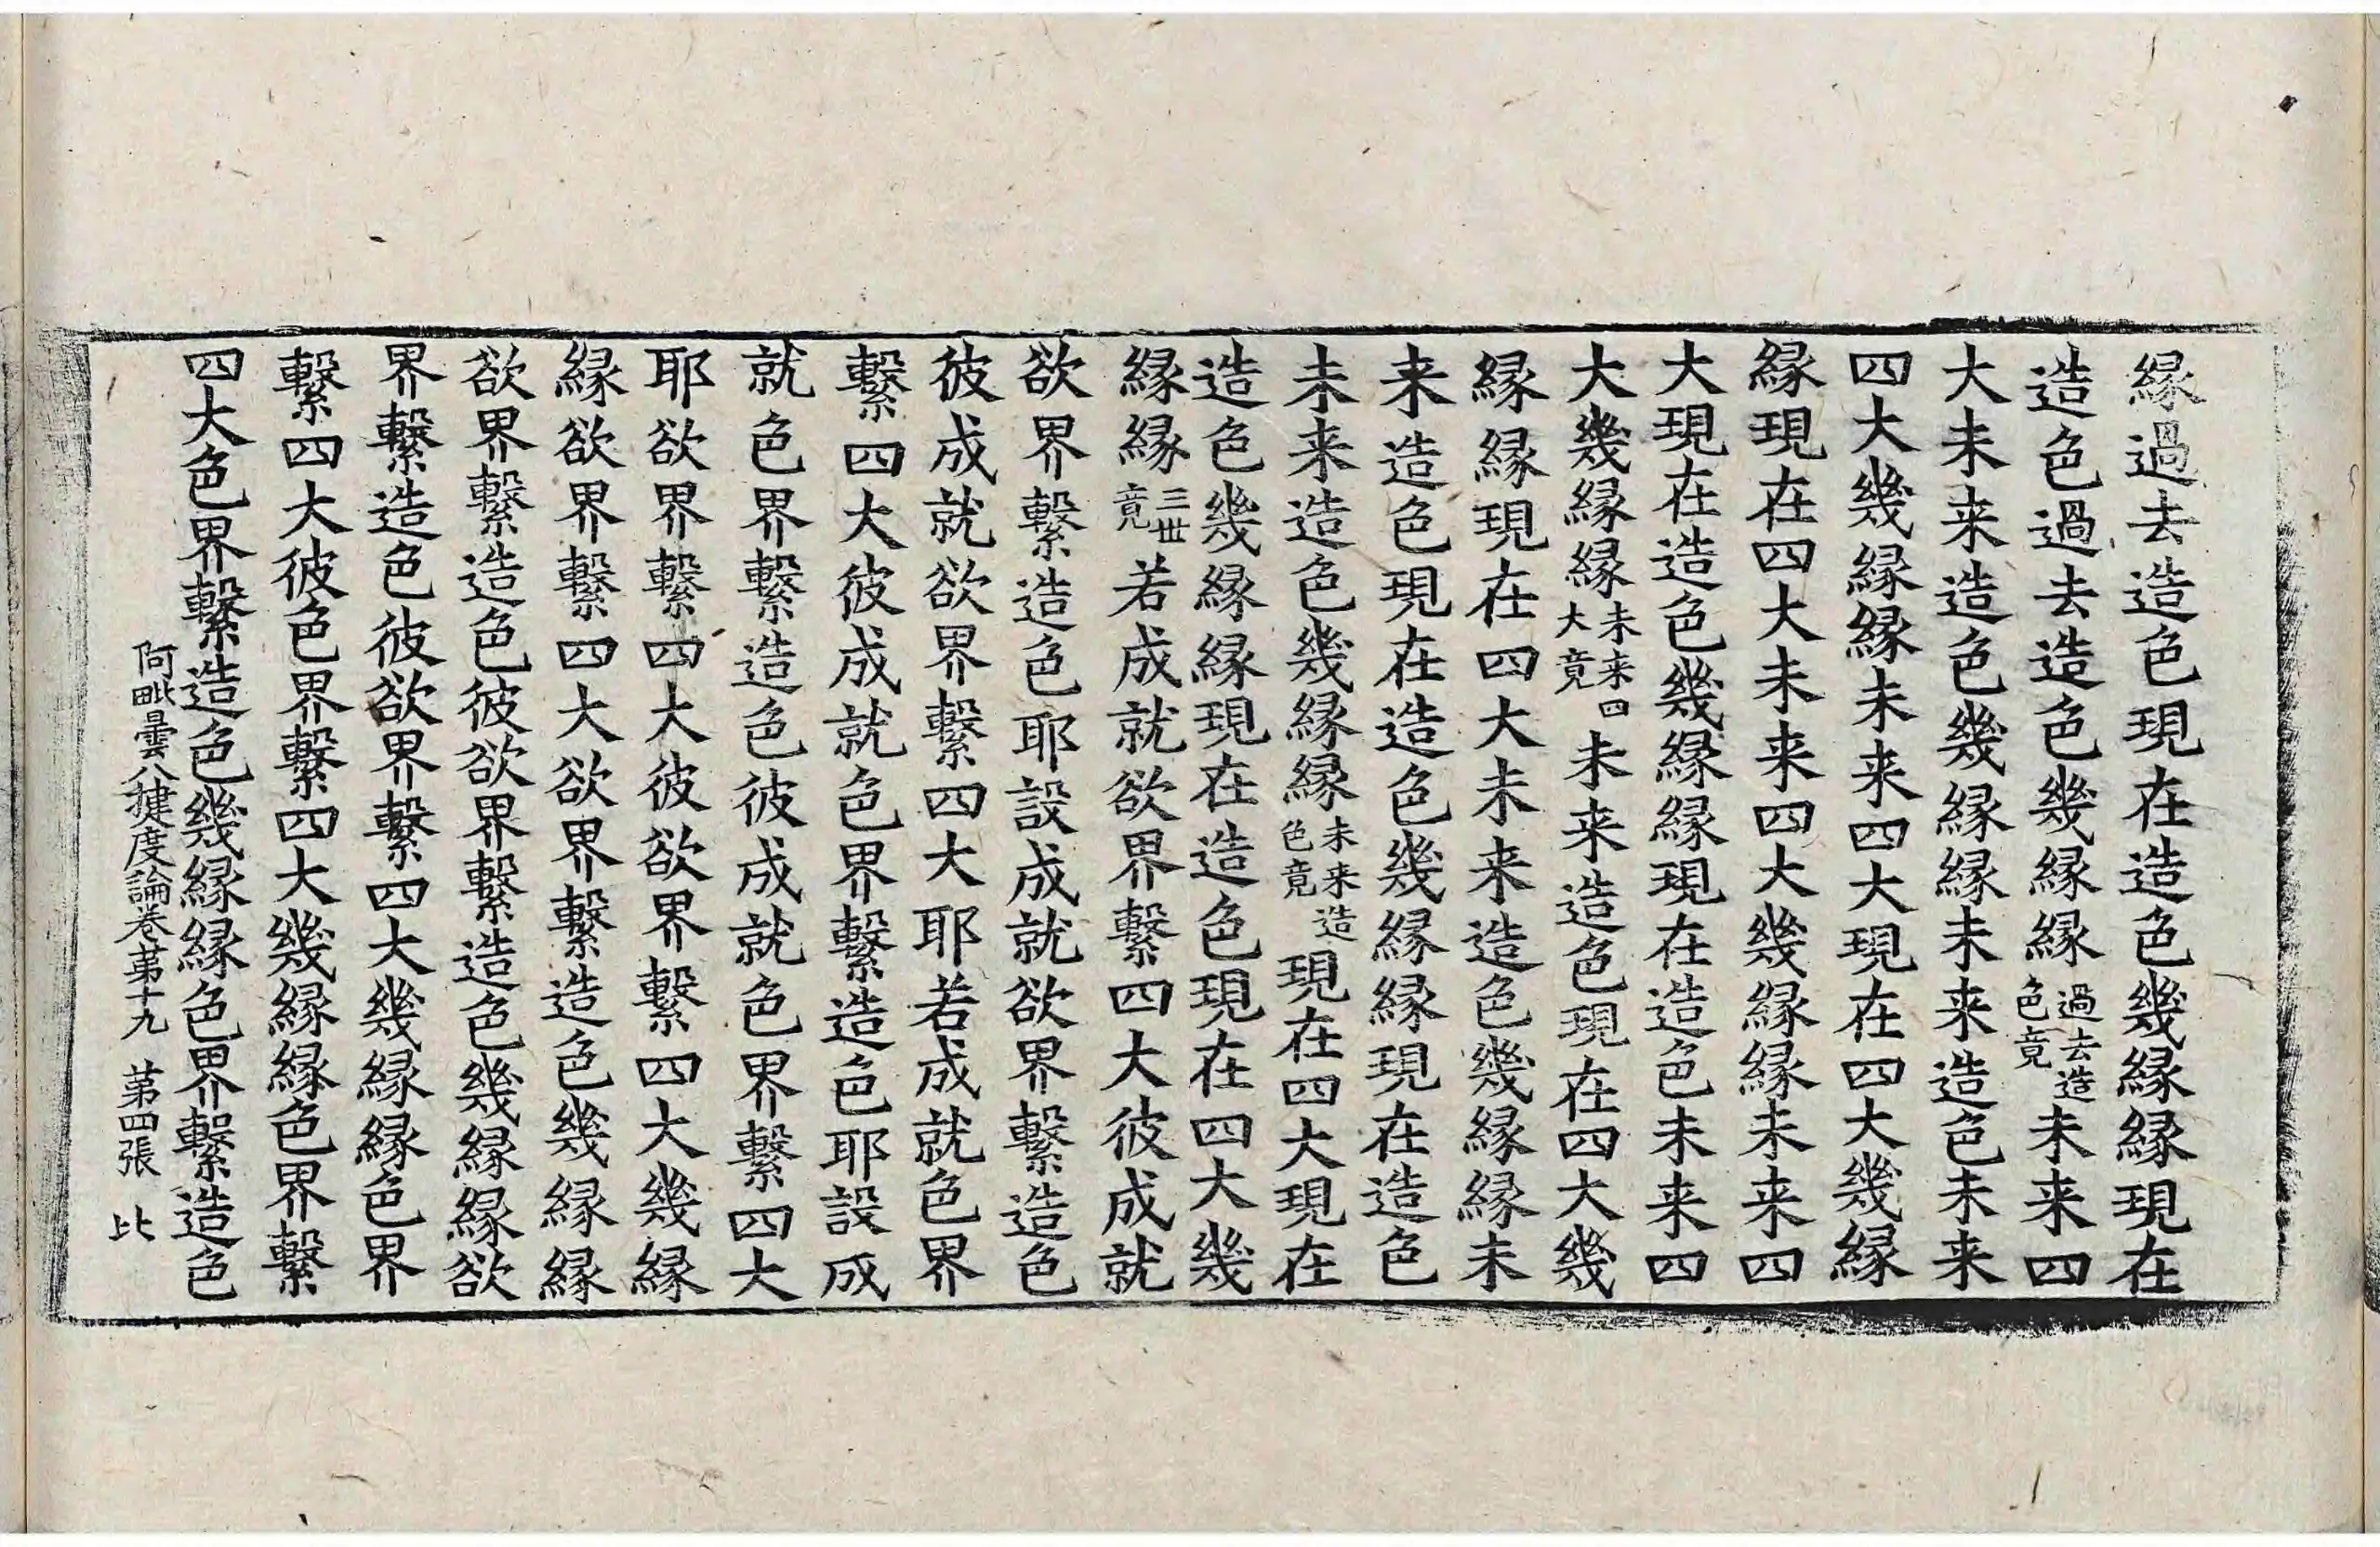 縁過去造色現在造色幾縁縁現在
造色過去造色幾縁縁過去造色竟未来四
大未来造色幾縁縁未来造色未来
四大幾縁縁未来四大現在四大幾縁
縁現在四大未来四大幾縁縁未来四
大現在造色幾縁縁現在造色未来四
大幾縁縁未来四大竟未来造色現在四大幾
縁縁現在四大未来造色幾縁縁未
来造色現在造色幾縁縁現在造色
未来造色幾縁縁未来造色竟現在四大現在
造色幾縁縁現在造色現在四大幾
縁縁三世竟若成就欲界繫四大彼成就
欲界繫造色耶設成就欲界繫造色
彼成就欲界繫四大耶若成就色界
繫四大彼成就色界繫造色耶設成
就色界繫造色彼成就色界繫四大
耶欲界繫四大彼欲界繫四大幾縁
縁欲界繫四大欲界繫造色幾縁縁
欲界繫造色彼欲界繫造色幾縁縁欲
界繫造色彼欲界繫四大幾縁縁色界
繫四大彼色界繫四大幾縁縁色界繫
四大色界繫造色幾縁縁色界繫造色
阿毗曇八揵度論卷第十九 第四張 比